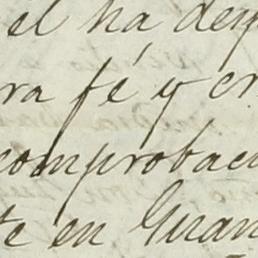 el ha dep
ra fé y cr
comprobac
te en Guan